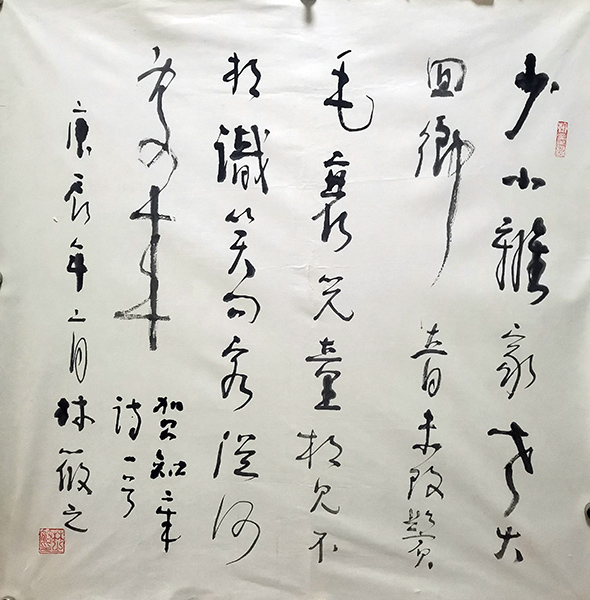 少小離家老大
回鄉音未改鬢
毛衰兒童相見不
相識笑問客從何
處來
賀知章
詩一首
庚辰年二月林筱之